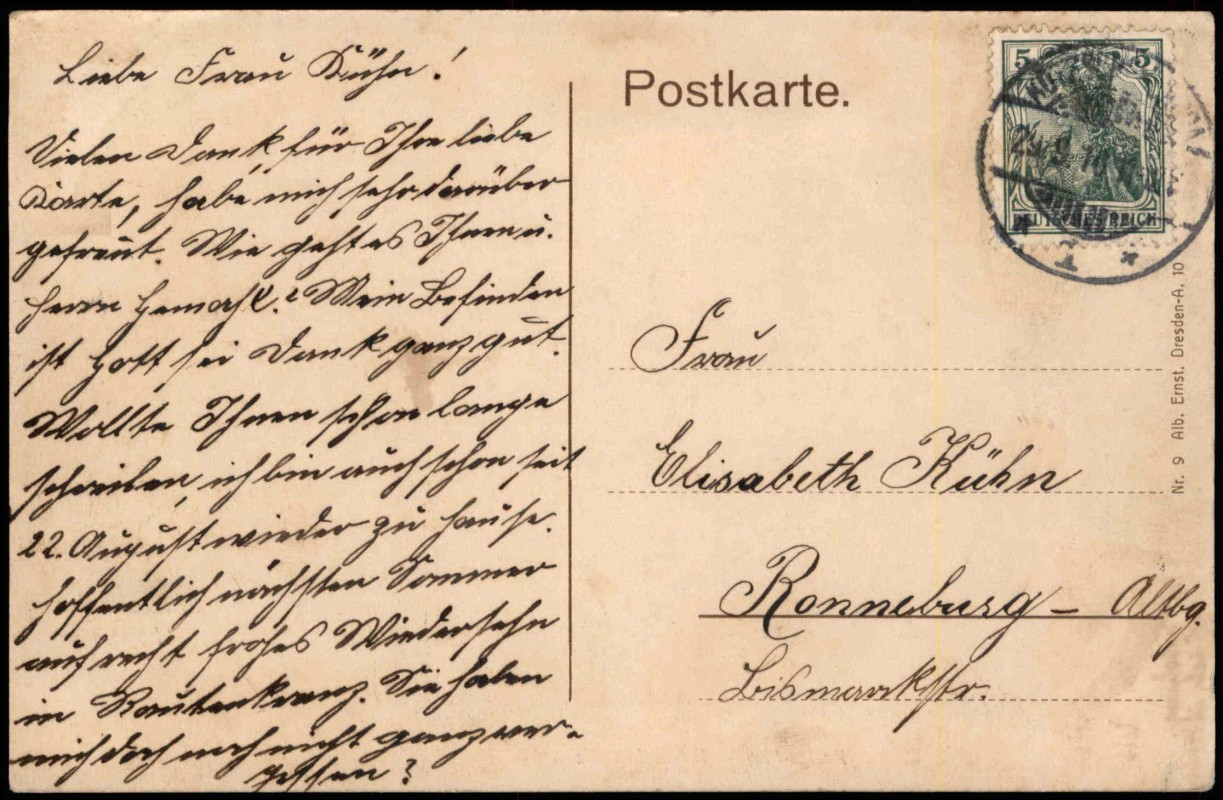 Liebe Frau Kühn!
Vielen Dank für Ihre liebe
Karte, habe mich sehr darüber
gefreut. Wie geht es Ihnen u.
Herrn Gemahl? Mein Befinden
ist Gott sei Dank ganz gut.
Wollte Ihnen schon lange
schreiben, ich bin auch schon seit
22. August wieder zu Hause.
Hoffentlich nächsten Sommer
auf recht frohes Wiedersehn
in Rautenkranz. Sie haben
mich doch noch nicht ganz ver-
gessen?
Postkarte.
5 5
DEUTSCHES REICH
Frau
Elisabeth Kühn
Ronneburg – Altbg.
Bismarckstr.
Nr. 9 Alb. Ernst, Dresden-A. 10